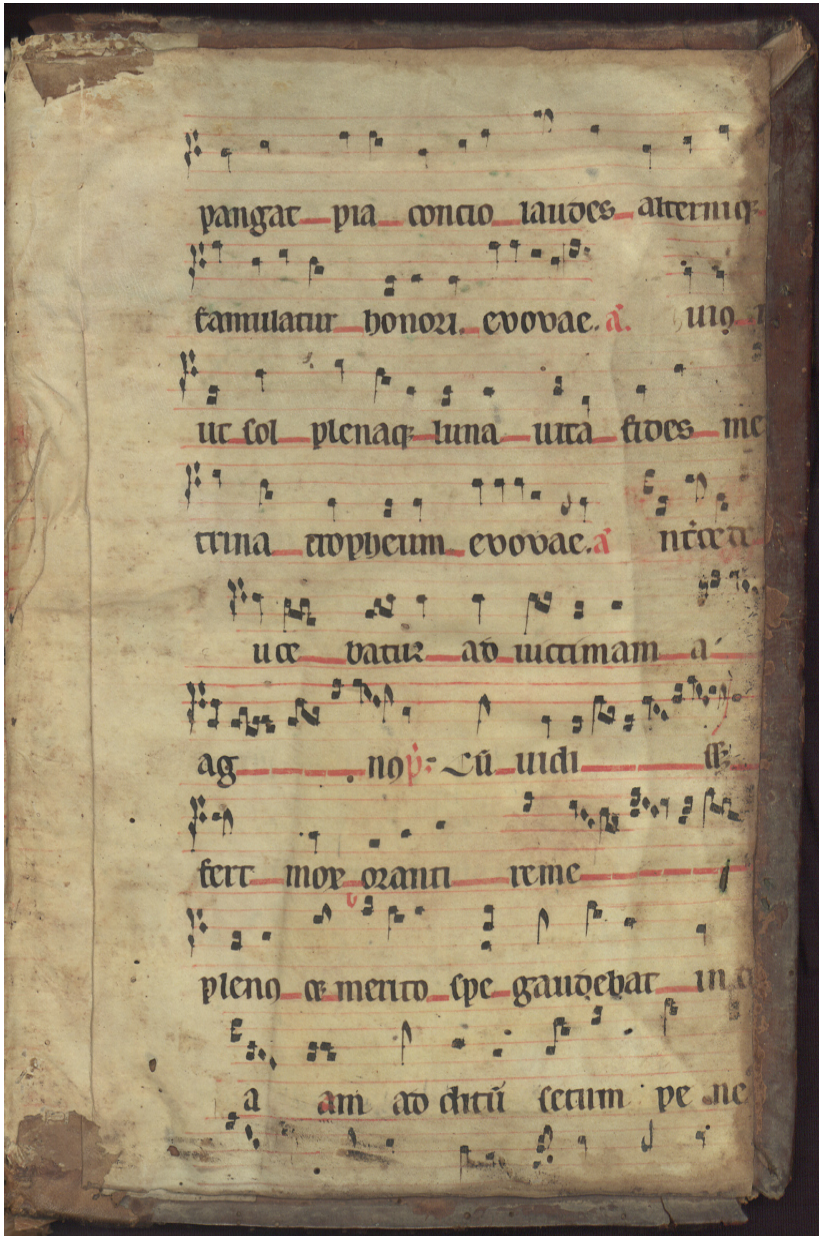 pangat pia concio laudes alterniq
famulatur honori. evovae. a. uiꝯ
ut sol plenaq luna uita fides me
trina tropheum evovae. a
uce batur ad uictimam a
ag nꝯ. Cū uidi
fert mox oranti reme
plenꝯ merito spe gaudebat in
a am ad ditū secum pe ne